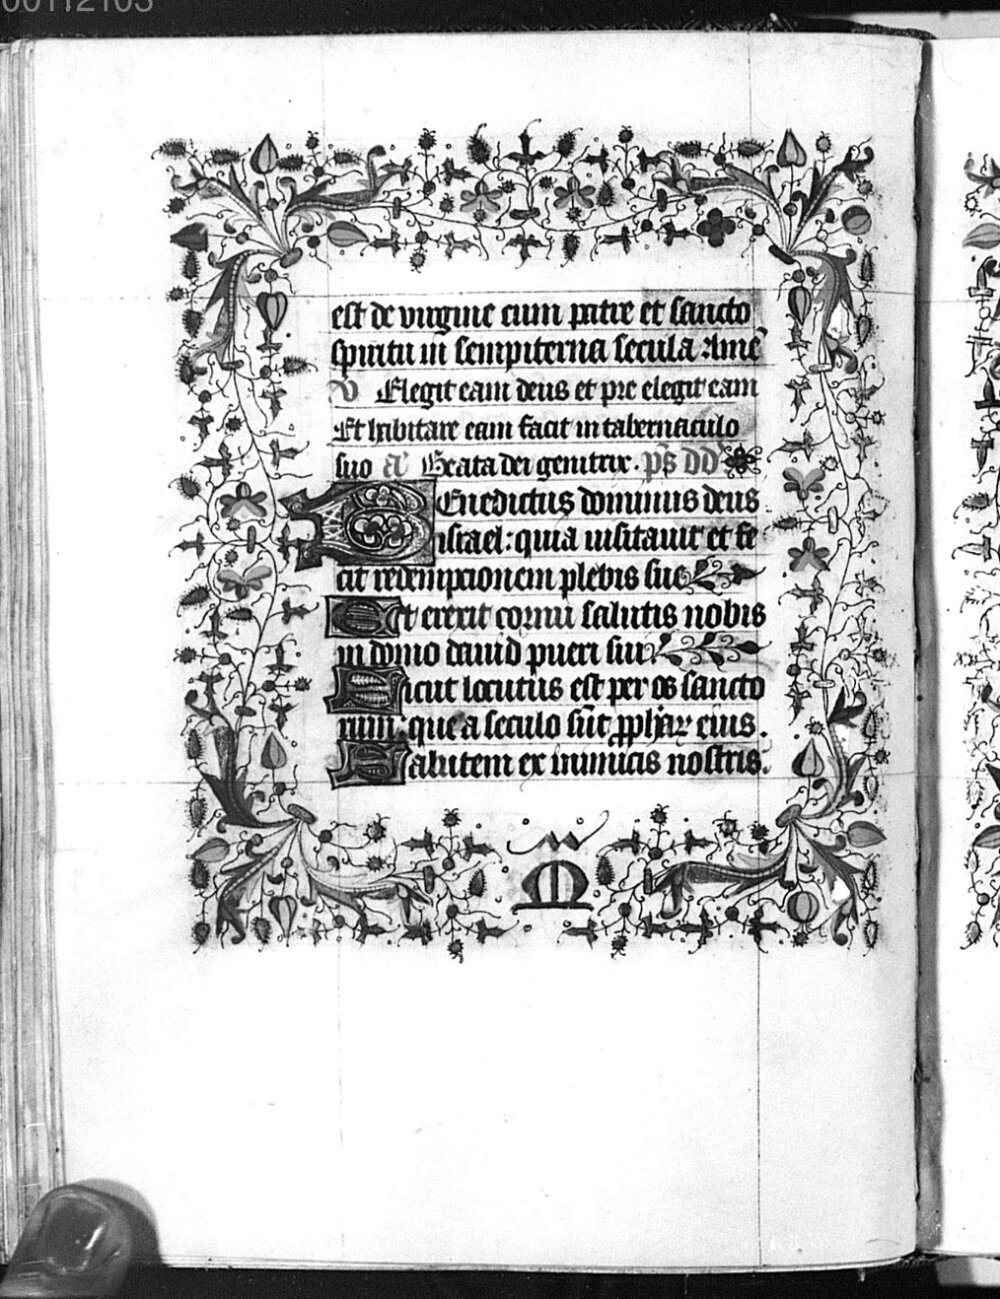 00112103
est de virgine cum patre et sancto
spiritu in sempiterna secula Amē
v Elegit eam deus et pre elegit eam
Et habitare eam facit in tabernaculo
suo a Beata dei genitrix. ps dd
Benedictus dominus deus
israel: quia visitauit et fe
cit redempcionem plebis sue
Et erexit cornu salutis nobis
in domo dauid pueri sui
Sicut locutus est per os sancto
rum: que a seculo sūt eius.
Salutem ex inimicis nostris.
M